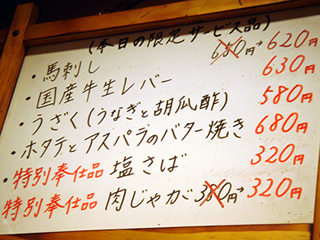 (本日の限定サービス品)
・馬刺し 680円→620円
・国産牛生レバー 630円
・うざく(うなぎと胡瓜酢) 580円
・ホタテとアスパラのバター焼き 680円
特別奉仕品 塩さば 320円
特別奉仕品 肉じゃが 380円→320円